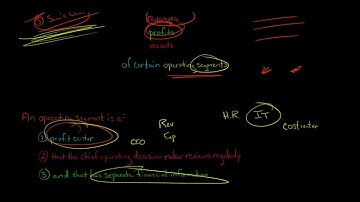 revenues
profits
assets
of certain operating segments
An operating segment is a:
① profit center
CEO
Rev
Exp
H.R.
IT
Cost center
② that the chief operating decision maker reviews regularly
③ and that has separate financial information